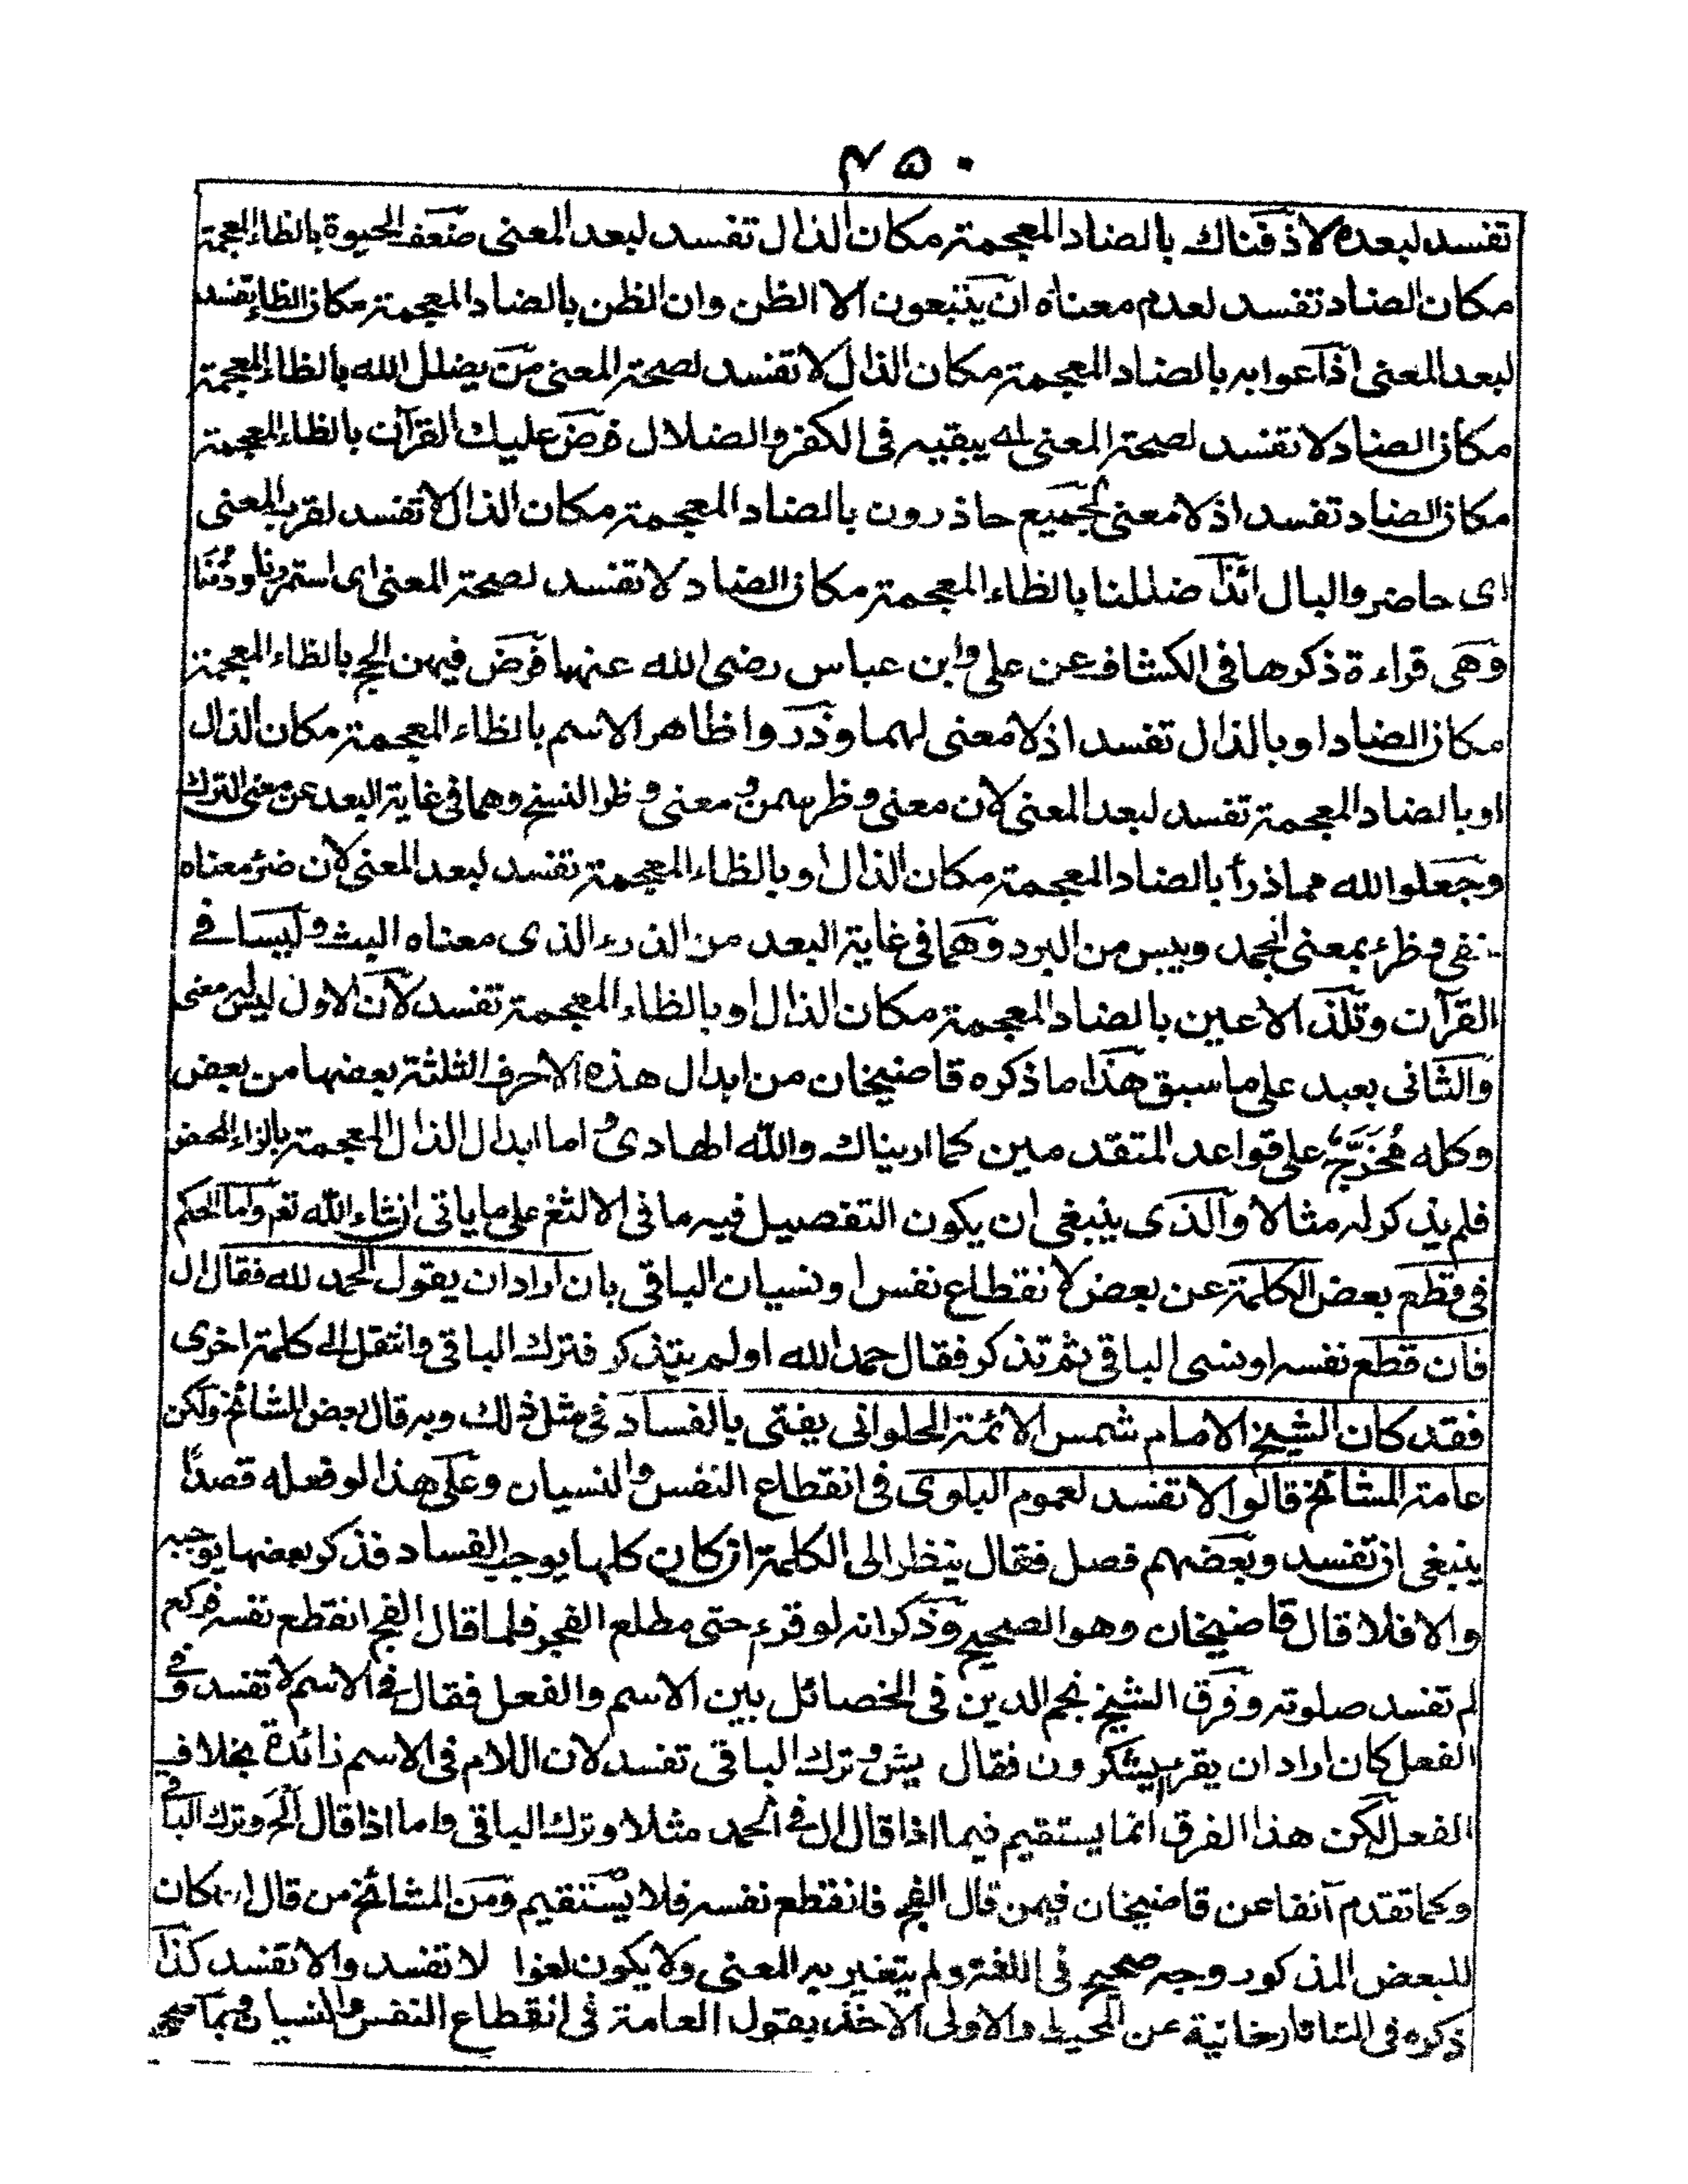 ٤٥٠
تفسد لبعده لاذقناك بالضاد المعجمة مكان الذال تفسد لبعد المعنى ضعف الحيوة بالظاء المعجمة
مكان الضاد تفسد لعدم معناه ان يتبعون الا الظن وان الظن بالضاد المعجمة مكان الظاء تفسد
لبعد المعنى اذاعوا به بالضاد المعجمة مكان الذال لا تفسد لصحة المعنى من يضلل الله بالظاء المعجمة
مكان الضاد لا تفسد لصحة المعنى اى يبقيه فى الكفر والضلال فرض عليك القرآن بالظاء المعجمة
مكان الضاد تفسد اذ لا معنى لجميع حاذرون بالضاد المعجمة مكان الذال لا تفسد لقرب المعنى
اى حاضروا البال ائذا ضللنا بالظاء المعجمة مكان الضاد لا تفسد لصحة المعنى اى استمررنا ودمنا
وهى قراءة ذكرها فى الكشاف عن على وابن عباس رضى الله عنهما فرض فيهن الحج بالظاء المعجمة
مكان الضاد او بالذال تفسد اذ لا معنى لهما وذروا ظاهر الاسم بالظاء المعجمة مكان الذال
او بالضاد المعجمة تفسد لبعد المعنى لان معنى وظر سمن ومعنى وظر النسخ وهما فى غاية البعد عن معنى الترك
وجعلوا لله مما ذرأ بالضاد المعجمة مكان الذال او بالظاء المعجمة تفسد لبعد المعنى لان ضرء معناه
نفى وظرء بمعنى انجمد ويبس من البرد وهما فى غاية البعد من الذرء الذى معناه البث وليسا فى
القرآن وتلذ الاعين بالضاد المعجمة مكان الذال او بالظاء المعجمة تفسد لان الاول ليس له معنى
والثانى بعيد على ما سبق هذا ما ذكره قاضيخان من ابدال هذه الاحرف الثلثة بعضها من بعض
وكله مُخَرَّجٌ على قواعد المتقدمين كما اريناك والله الهادى واما ابدال الذال المعجمة بالزاء المحض
فلم يذكر له مثالا والذى ينبغى ان يكون التفصيل فيه ما فى الالثغ على ما ياتى انشاء الله تعم واما الحكم
فى قطع بعض الكلمة عن بعض لانقطاع نفس او نسيان الباقى بان اراد ان يقول الحمد لله فقال ال
فان قطع نفسه او نسى الباقى ثم تذكر فقال حمد الله او لم يتذكر فترك الباقى وانتقل الى كلمة اخرى
فقد كان الشيخ الامام شمس الائمة الحلوانى يفتى بالفساد فى مثل ذلك وبه قال بعض المشائخ ولكن
عامة المشائخ قالوا لا تفسد لعموم البلوى فى انقطاع النفس والنسيان وعلى هذا لو فعله قصدًا
ينبغى ان تفسد وبعضهم فصل فقال ينظر الى الكلمة ان كان كلها يوجب الفساد فذكر بعضها يوجبه
والا فلا قال قاضيخان وهو الصحيح وذكر انه لو قرء حتى مطلع الفجر فلما قال الفج انقطع نفسه فركع
لم تفسد صلوته وفرق الشيخ نجم الدين فى الخصائل بين الاسم والفعل فقال فى الاسم لا تفسد وفى
الفعل كان اراد ان يقرء يشكرون فقال يش وترك الباقى تفسد لان اللام فى الاسم زائدة بخلاف
الفعل لكن هذا الفرق انما يستقيم فيما اذا قال ال فى الحمد مثلا وترك الباقى واما اذا قال الح وترك الباقى
وكما تقدم آنفا عن قاضيخان فيمن قال الفج فانقطع نفسه فلا يستقيم ومن المشائخ من قال ان كان
للبعض المذكور وجه صحيح فى اللغة ولم يتغير به المعنى ولا يكون لغوا لا تفسد والا تفسد كذا
ذكره فى التاتارخانية عن المحيط والاولى الاخذ بقول العامة فى انقطاع النفس والنسيان وبما صححه